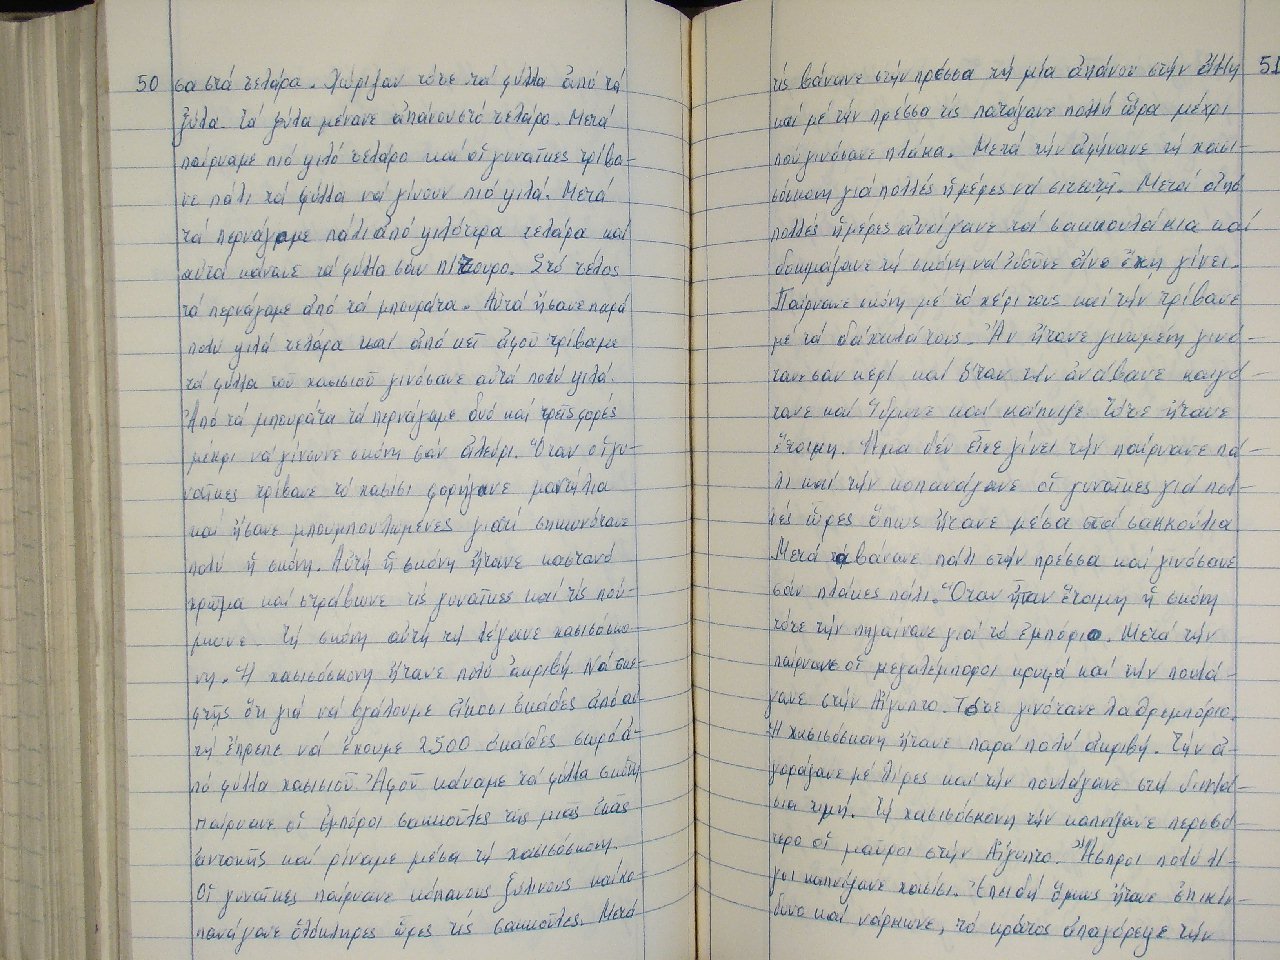 50
σα στά τελάρα. Χώριζαν τότε τά φύλλα ἀπό τά
ξύλα. Τά ξύλα μένανε ἀπάνου στό τελάρο. Μετά
παίρναμε πιό ψιλό τελάρο καί οἱ γυναῖκες τρίβα-
νε πάλι τά φύλλα νά γίνουν πιό ψιλά. Μετά
τά περνάγαμε πάλι ἀπό ψιλότερα τελάρα καί
αὐτά κάναμε τά φύλλα σάν πίτουρο. Στό τέλος
τά περνάγαμε ἀπό τά μπουράτα. Αὐτά ἤσανε παρά
πολύ ψιλά τελάρα καί ἀπό κεῖ ἀφοῦ τρίβαμε
τά φύλλα τοῦ χασισιοῦ γινόσανε αὐτά πολύ ψιλά.
Ἀπό τά μπουράτα τά περνάγαμε δυό καί τρεῖς φορές
μέχρι νά γίνουνε σκόνη σάν ἀλεύρι. Ὅταν οἱ γυ-
ναῖκες τρίβανε τό χασίσι φορήγανε μαντήλια
καί ἤσανε μπουμπουλωμένες γιατί σηκωνότανε
πολύ ἡ σκόνη. Αὐτή ἡ σκόνη ἤτανε καστανό
χρῶμα καί στράβωνε τίς γυναῖκες καί τίς πού-
μωνε. Τή σκόνη αὐτή τή λέγανε χασισόσκο-
νη. Ἡ χασισόσκονη ἤτανε πολύ ἀκριβή. Νά σκε-
φτῆς ὅτι γιά νά βγάλουμε εἴκοσι ὀκάδες ἀπό αὐ-
τή ἔπρεπε νά ἔχουμε 2500 ὀκάδες σωρό ἀ-
πό φύλλα χασισιοῦ. Ἀφοῦ κάναμε τά φύλλα σκόνη
παίρνανε οἱ ἐμπόροι σακκοῦλες τῆς μιᾶς ὀκᾶς
ἀντοχῆς καί ρίναμε μέσα τή χασισόσκονη.
Οἱ γυναῖκες παίρνανε κόπανους ξύλινους καί κο-
πανάγανε ὁλόκληρες ὧρες τίς σακκοῦλες. Μετά
51
τίς βάνανε στήν πρέσσα τή μία ἀπάνου στήν ἄλλη
καί μέ τήν πρέσσα τίς πατάγανε πολλή ὥρα μέχρι
πού γινόσανε πλάκα. Μετά τήν ἀφήνανε τή χασι-
σόσκονη γιά πολλές ἡμέρες νά σιτευτῆ. Μετά ἀπό
πολλές ἡμέρες ἀνοίγανε τά σακκουλάκια καί
δοκιμάζανε τή σκόνη νά ἰδοῦνε ἄν ἔχη γίνει.
Παίρνανε σκόνη μέ τό χέρι τους καί τήν τρίβανε
μέ τά δάχτυλά τους. Ἄν ἤτανε γινωμένη γινό-
τανε σαν κερί καί ὅταν τήν ἀνάβανε καιγό-
τανε καί ἵδρωνε καί κάπνιζε τότε ἤτανε
ἕτοιμη. Ἅμα δέν εἶχε γίνει τήν παίρνανε πά-
λι καί τήν κοπανάγανε οἱ γυναῖκες γιά πολ-
λές ὧρες ὅπως ἤτανε μέσα στά σακκούλια
Μετά τά βάνανε πάλι στήν πρέσσα καί γινόσανε
σάν πλάκες πάλι. Ὅταν ἦταν ἕτοιμη ἡ σκόνη
τότε τήν πηγαίνανε γιά τό ἐμπόριο. Μετά τήν
παίρνανε οἱ μεγαλέμποροι κρυφά καί τήν πουλά-
γανε στήν Αἴγυπτο. Τότε γινότανε λαθρεμπόριο.
Ἡ χασισόσκονη ἤτανε παρά πολύ ἀκριβή. Τήν ἀ-
γοράζανε μέ λίρες καί τήν πουλάγανε στή διπλά-
σια τιμή. Τή χασισόσκονη τήν καπνίζανε περσσό-
τερο οἱ μαῦροι στήν Αἴγυπτο. Ἄσπροι πολύ λί-
γοι καπνίζανε χασίσι. Ἐπειδή ὅμως ἤτανε ἐπικίν-
δυνο καί νάρκωνε, τό κράτος ἀπαγόρεψε τήν